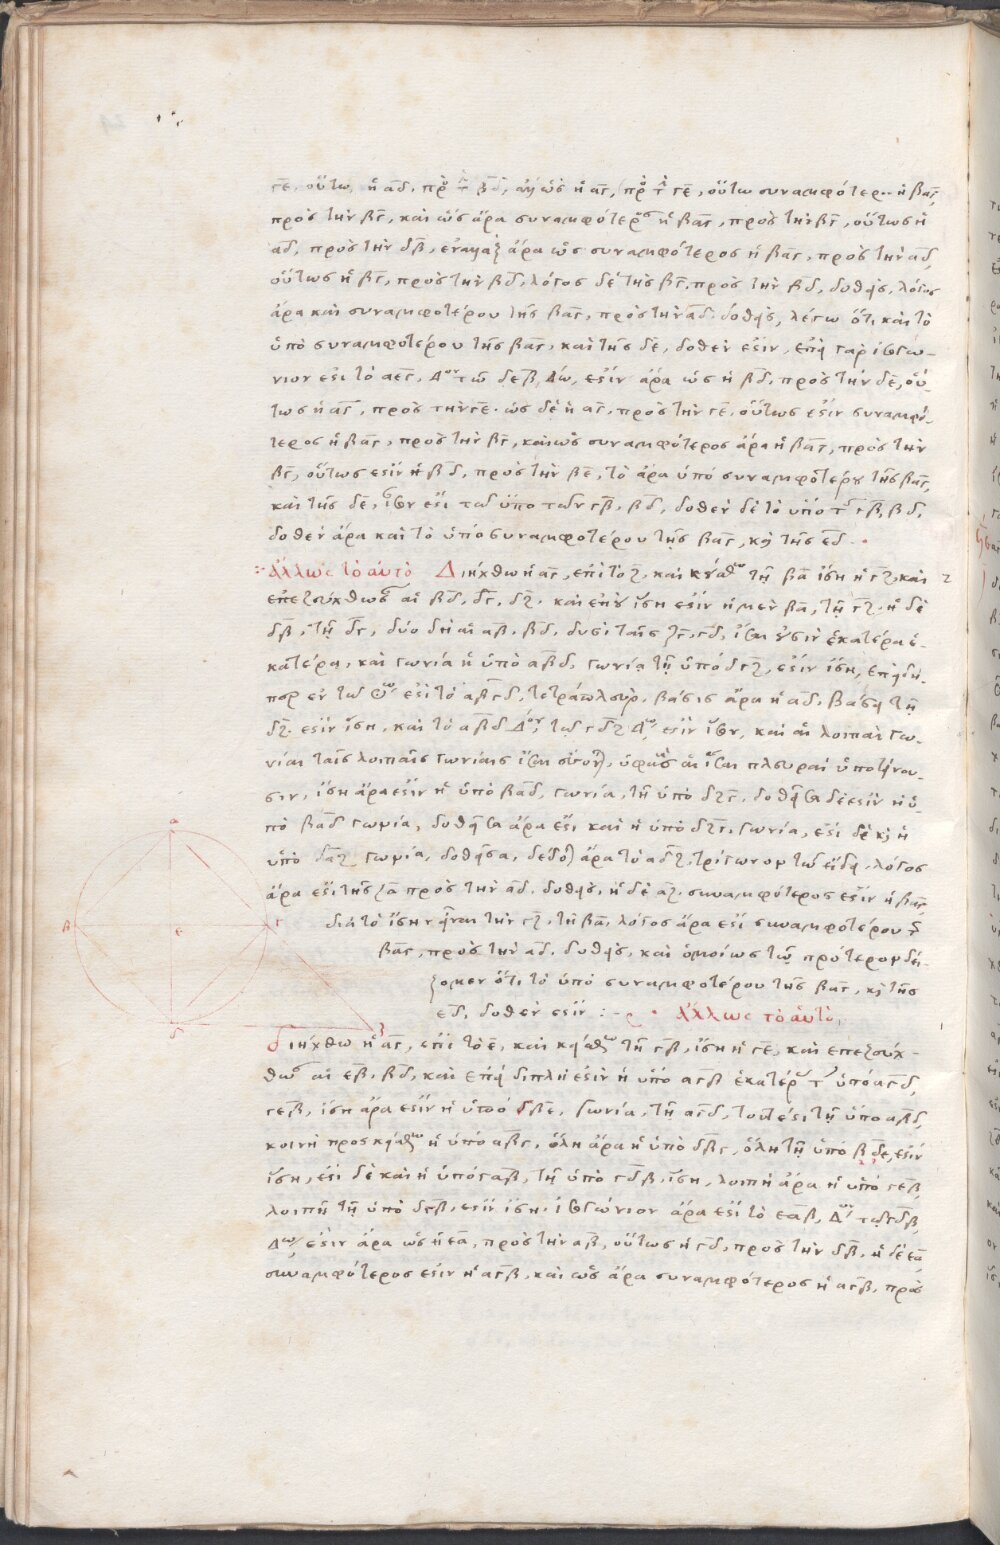 γε, οὕτω ἡ αδ, πρὸς τὴν βδ, ἀλλ' ὡς ἡ αγ, πρὸς τὴν γε, οὕτω συναμφότερος ἡ βαγ,
πρὸς τὴν βγ, καὶ ὡς ἄρα συναμφότερος ἡ βαγ, πρὸς τὴν βγ, οὕτως ἡ
αδ, πρὸς τὴν δβ, ἐναλλὰξ ἄρα ὡς συναμφότερος ἡ βαγ, πρὸς τὴν αδ,
οὕτως ἡ βγ, πρὸς τὴν βδ, λόγος δὲ τῆς βγ, πρὸς τὴν βδ, δοθεὶς, λόγος
ἄρα καὶ συναμφοτέρου τῆς βαγ, πρὸς τὴν αδ, δοθεὶς, λέγω ὅτι καὶ τὸ
ὑπὸ συναμφοτέρου τῆς βαγ, καὶ τῆς δε, δοθέν ἐστιν, ἐπεὶ γὰρ ἰσογώ-
νιόν ἐστι τὸ αεγ, Δον τῶ δεβ, Δω, ἔστιν ἄρα ὡς ἡ βδ, πρὸς τὴν δε, οὕ-
τως ἡ αγ, πρὸς τὴν γε. ὡς δὲ ἡ αγ, πρὸς τὴν γε, οὕτως ἐστὶν συναμφό-
τερος ἡ βαγ, πρὸς τὴν βγ, καὶ ὡς συναμφότερος ἄρα ἡ βαγ, πρὸς τὴν
βγ, οὕτως ἐστὶν ἡ βδ, πρὸς τὴν βε, τὸ ἄρα ὑπὸ συναμφοτέρου τῆς βαγ,
καὶ τῆς δε, ἴσον ἐστὶ τῶ ὑπὸ τῶν γβ, βδ, δοθὲν δὲ τὸ ὑπὸ τῶν γβ, βδ,
δοθὲν ἄρα καὶ τὸ ὑπὸ συναμφοτέρου τῆς βαγ, καὶ τῆς εδ.
Ἄλλως τὸ αὐτὸ Διήχθω ἡ αγ, ἐπὶ τὸ ζ, καὶ κείσθω τῇ βα ἴση ἡ γζ, καὶ
ἐπεζεύχθωσαν αἱ βδ, δγ, δζ. καὶ ἐπεὶ ἴση ἐστὶν ἡ μὲν βα, τῇ γζ. ἡ δὲ
δβ, τῇ δγ, δύο δὴ αἱ αβ, βδ, δυσὶ ταῖς ζγ, γδ, ἴσαι εἰσὶν ἑκατέρα ἑ-
κατέρα, καὶ γωνία ἡ ὑπὸ αβδ, γωνίᾳ τῇ ὑπὸ δγζ, ἐστὶν ἴση, ἐπειδή-
περ ἐν τῶ κύκλῳ ἐστὶ τὸ αβγδ, τετράπλευρον. βάσις ἄρα ἡ αδ, βάσει τῇ
δζ. ἐστὶν ἴση, καὶ τὸ αβδ Δον, τῶ γδζ Δω, ἐστὶν ἴσον, καὶ αἱ λοιπαὶ γω-
νίαι ταῖς λοιπαῖς γωνίαις ἴσαι ἔσονται, ὑφ' ἃς αἱ ἴσαι πλευραὶ ὑποτείνου-
σιν, ἴση ἄρα ἐστὶν ἡ ὑπὸ βαδ, γωνία, τῇ ὑπὸ δζγ, δοθεῖσα δέ ἐστιν ἡ ὑ-
πὸ βαδ γωνία, δοθεῖσα ἄρα ἐστὶ καὶ ἡ ὑπὸ δζγ, γωνία, ἐστὶ δὲ καὶ ἡ
ὑπὸ δαζ γωνία, δοθεῖσα, δέδοται ἄρα τὸ αδζ, τρίγωνον τῶ εἴδει. λόγος
ἄρα ἐστὶ τῆς ζα πρὸς τὴν αδ, δοθεὶς, ἡ δὲ αζ, συναμφότερός ἐστιν ἡ βαγ,
διὰ τὸ ἴσην εἶναι τὴν γζ, τῇ βα, λόγος ἄρα ἐστὶ συναμφοτέρου τῆς
βαγ, πρὸς τὴν αδ, δοθεὶς, καὶ ὁμοίως τῶ πρότερον δεί-
ξομεν ὅτι τὸ ὑπὸ συναμφοτέρου τῆς βαγ, καὶ τῆς
εδ, δοθέν ἐστιν :- Ἄλλως τὸ αὐτὸ,
διήχθω ἡ αγ, ἐπὶ τὸ ε, καὶ κείσθω τῇ γβ, ἴση ἡ γε, καὶ ἐπεζεύχ-
θωσαν αἱ εβ, βδ, καὶ ἐπεὶ διπλῆ ἐστὶν ἡ ὑπὸ αγβ ἑκατέρας τῶν ὑπὸ αγδ,
γεβ, ἴση ἄρα ἐστὶν ἡ ὑπὸ δβε, γωνία, τῇ αγδ, τουτέστι τῇ ὑπὸ αβδ,
κοινὴ προσκείσθω ἡ ὑπὸ αβγ, ὅλη ἄρα ἡ ὑπὸ δβγ, ὅλη τῇ ὑπὸ βδε, ἐστὶν
ἴση, ἐστὶ δὲ καὶ ἡ ὑπὸ γαβ, τῇ ὑπὸ γδβ, ἴση, λοιπὴ ἄρα ἡ ὑπὸ γεβ,
λοιπῇ τῇ ὑπὸ δγβ, ἐστὶν ἴση. ἰσογώνιον ἄρα ἐστὶ τὸ εαβ, Δον τῶ γδβ,
Δω, ἔστιν ἄρα ὡς ἡ εα, πρὸς τὴν αβ, οὕτως ἡ γδ, πρὸς τὴν δβ, ἡ δὲ εα,
συναμφότερός ἐστιν ἡ αγβ, καὶ ὡς ἄρα συναμφότερος ἡ αγβ, πρὸς
α
β
ε
γ
δ
ζ